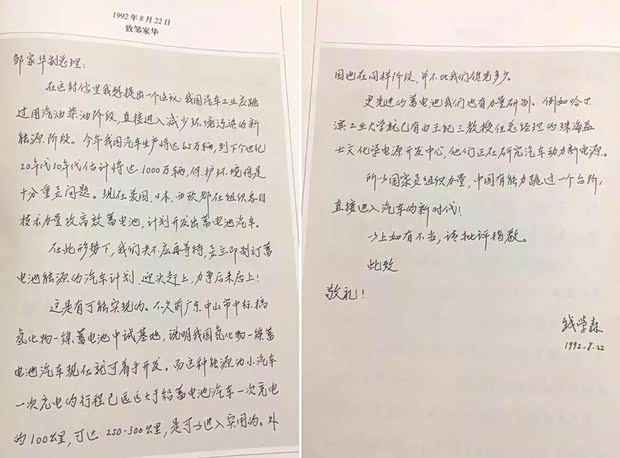 1992年8月22日
致邹家华
邹家华副总理:
在这封信里我想提出一个建议:我国汽车工业应跳
过用汽油柴油阶段,直接进入减少环境污染的新
能源阶段。今年我国汽车生产将达62万辆,到下个世纪
20年代10年代估计将达1000万辆,保护环境将是
十分重要问题。现在美国、日本、西欧都在组织各自
技术力量攻高效蓄电池,计划开发出蓄电池汽车。
在此形势下,我们决不应再等待,要立即制订蓄
电池能源的汽车计划,迎头赶上,力争后来居上!
这是有可能实现的。不久前广东中山市中标搞
氢化物—镍蓄电池中试基地,说明我国氢化物—镍蓄
电池汽车现在就可着手开发。而这种能源的小汽车
一次充电的行程已远远大于铅蓄电池汽车一次充电
的100公里,可达250-300公里,是可以进入实用的。外
国也在同样阶段,并不比我们领先多少。
更先进的蓄电池我们也有力量研制。例如哈尔
滨工业大学就已有由王纪三教授任总经理的珠海益
士文化学电源开发中心,他们正在研究汽车动力新电源。
所以国家要组织力量,中国有能力跳过一个台阶,
直接进入汽车的新时代!
以上如有不当,请批评指教。
此致
敬礼!
钱学森
1992.8.22